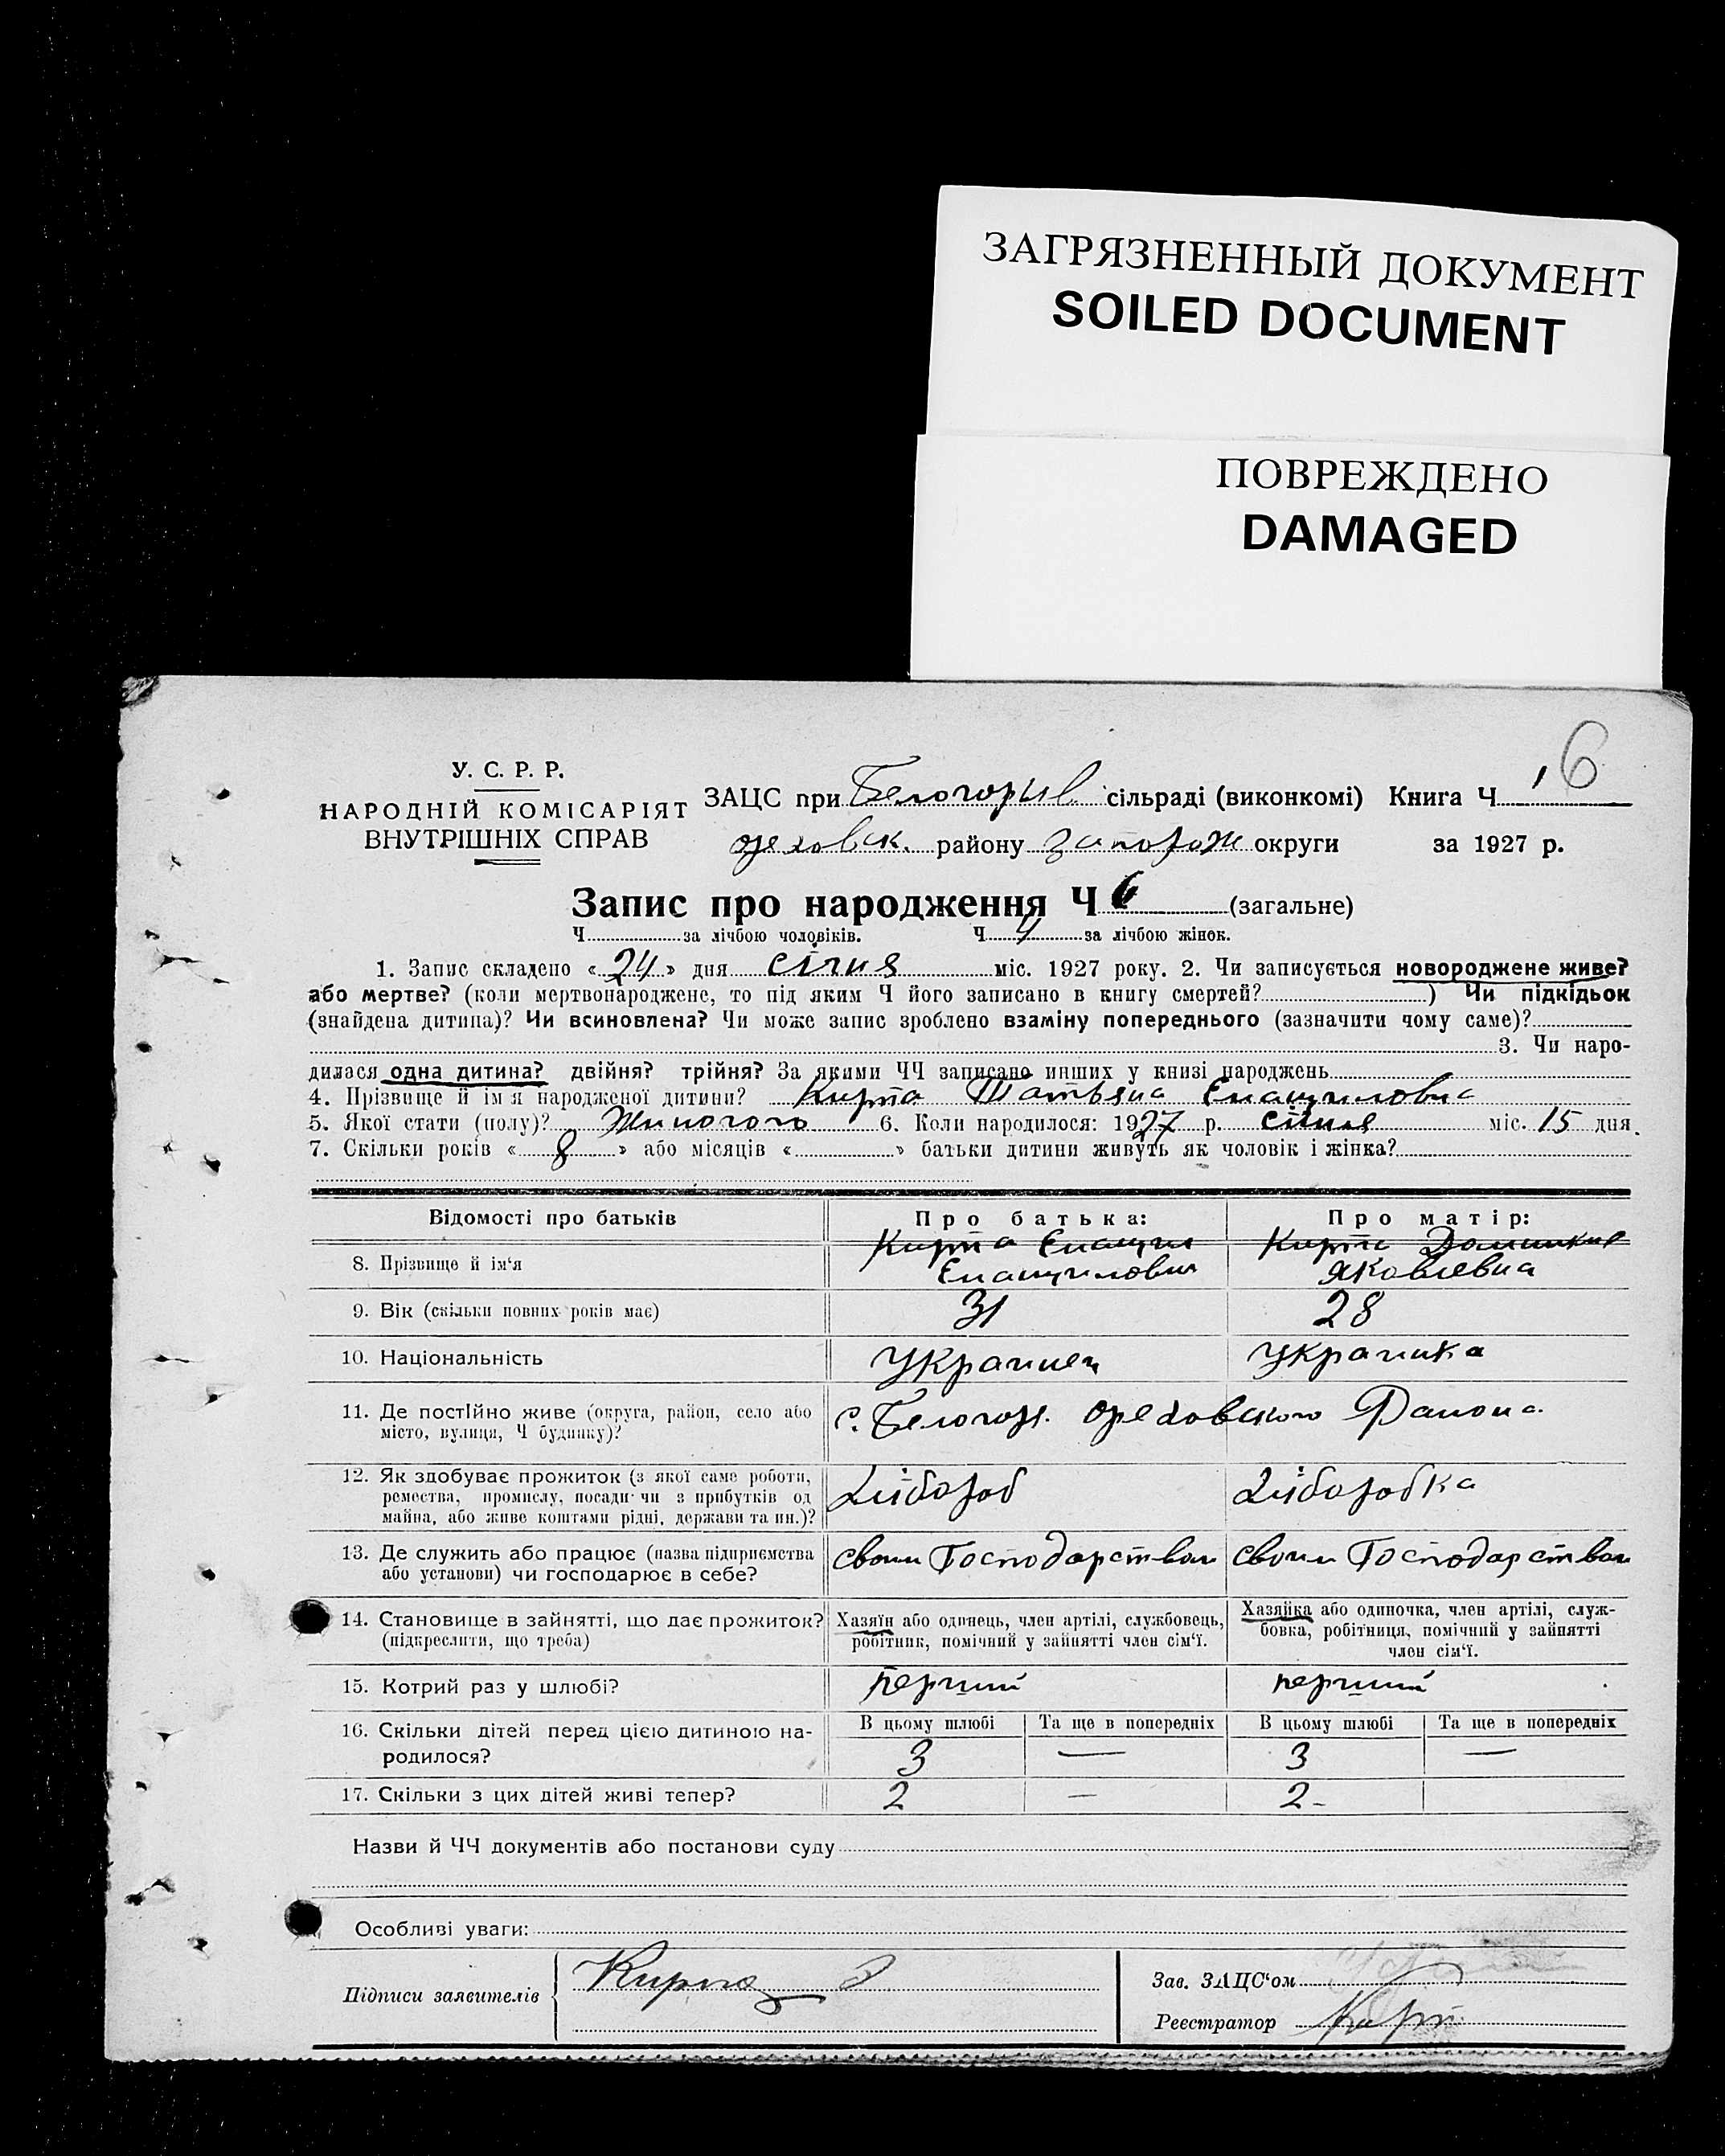 ЗАГРЯЗНЕННЫЙ ДОКУМЕНТ
SOILED DOCUMENT
ПОВРЕЖДЕНО
DAMAGED
6
У. С. Р. Р.
НАРОДНІЙ КОМІСАРІЯТ
ВНУТРІШНІХ СПРАВ
ЗАЦС при Белогорыв сільраді (виконкомі) Книга Ч
ореховск. району запорож округи за 1927 р.
Запис про народження Ч 6 (загальне)
Ч за лічбою чоловіків. Ч 4 за лічбою жінок.
1. Запис складено « 24 » дня січня міс. 1927 року. 2. Чи записується новороджене живе?
або мертве? (коли мертвонароджене, то під яким Ч його записано в книгу смертей? ) Чи підкідьок
(знайдена дитина)? Чи всиновлена? Чи може запис зроблено взаміну попереднього (зазначити чому саме)?
3. Чи наро-
дилася одна дитина? двійня? трійня? За якими ЧЧ записано инших у книзі народжень
4. Прізвище й ім'я народженої дитини? Кирпа Татьяна
5. Якої стати (полу)? Жиночого 6. Коли народилося: 1927 р. січня міс. 15 дня.
7. Скільки років « 8 » або місяців « » батьки дитини живуть як чоловік і жінка?
Відомості про батьків
Про батька:
Про матір:
8. Прізвище й ім'я
Кирпа
Кирпа
Яковлевна
9. Вік (скільки повних років має)
31
28
10. Національність
Украинец
Украинка
11. Де постійно живе (округа, район, село або
місто, вулиця, Ч будинку)?
с. Белогор. ореховского Район
12. Як здобуває прожиток (з якої саме роботи,
ремества, промислу, посади чи з прибутків од
майна, або живе коштами рідні, держави та ин.)?
хлібороб
хлiборобка
13. Де служить або працює (назва підприємства
або установи) чи господарює в себе?
своим Господарством
своим Господарством
14. Становище в зайнятті, що дає прожиток?
(підкреслити, що треба)
Хазяїн або одинець, член артілі, службовець,
робітник, помічний у зайнятті член сім'ї.
Хазяйка або одиночка, член артілі, служ-
бовка, робітниця, помічний у зайнятті
член сім'ї.
15. Котрий раз у шлюбі?
перший
перший
16. Скільки дітей перед цією дитиною на-
родилося?
В цьому шлюбі
Та ще в попередніх
В цьому шлюбі
Та ще в попередніх
3
—
3
—
17. Скільки з цих дітей живі тепер?
2
—
2-
Назви й ЧЧ документів або постанови суду
Особливі уваги:
Підписи заявителів
Кирпа
Зав. ЗАЦС'ом
Реєстратор